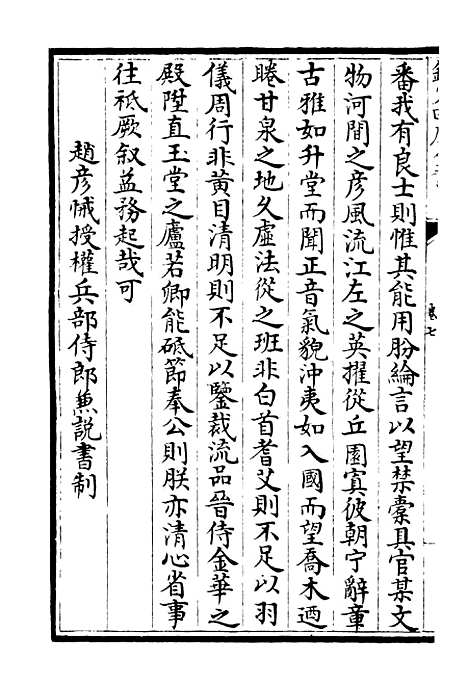 番我有良士則惟其能用肦綸言以望禁橐具官某文
物河間之彦風流江左之英擢從丘園寘彼朝宁辭章
古雅如升堂而聞正音氣貌沖夷如入國而望喬木迺
睠甘泉之地久虚法從之班非白首耆艾則不足以羽
儀周行非黄目清明則不足以鑒裁流品晉侍金華之
殿陞直玉堂之廬若卿能砥節奉公則朕亦清心省事
往祗厥叙益務起哉可
趙彦悈授權兵部侍郎兼説書制
卷七